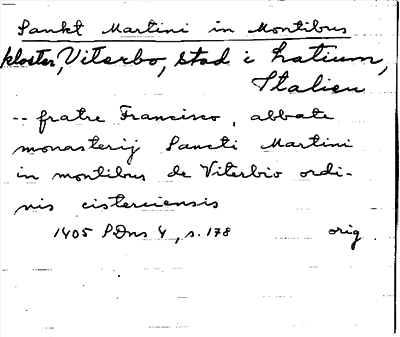 Sankt Martini in Montibus
kloster, Viterbo, stad i Latium,
Italien
-- fratre Francisco, abbate
monasterij Sancti Martini
in montibus de Viterbio ordi-
nis cisterciensis
1405 PDns 4, s. 178 orig